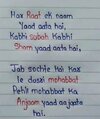 Har Raat ek naam
Yaad aata hai,
Kabhi subah Kabhi
Sham yaad aata hai,
Jab sochte hai kar
le dusri mohabbat
Pehli mohabbat ka
Anjaam yaad aajaata
hai.